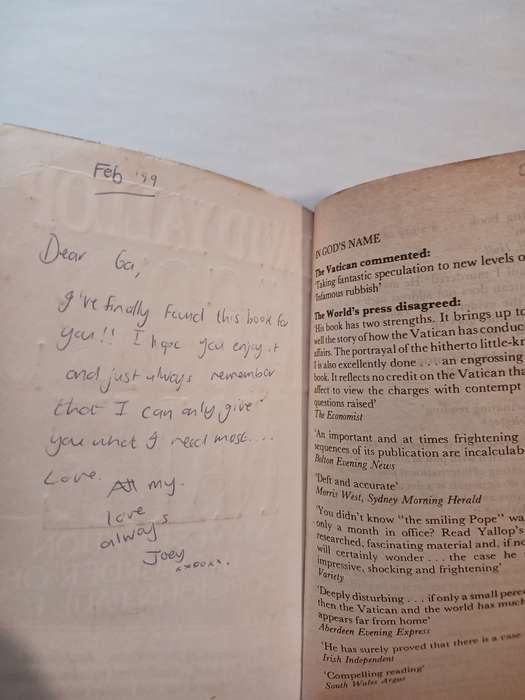 Feb '99
Dear Ga,
I've finally found this book for
you!! I hope you enjoy it
and just always remember
that I can only give
you what I need most....
Love. All my
love
always
Joey
xxooxx.
IN GOD'S NAME
The Vatican commented:
'Taking fantastic speculation to new levels o
'Infamous rubbish'
The World's press disagreed:
'His book has two strengths. It brings up to
well the story of how the Vatican has conduc
affairs. The portrayal of the hitherto little-k
is also excellently done . . . an engrossing
book. It reflects no credit on the Vatican tha
affect to view the charges with contempt
questions raised'
The Economist
'An important and at times frightening
sequences of its publication are incalculab
Bolton Evening News
'Deft and accurate'
Morris West, Sydney Morning Herald
'You didn't know "the smiling Pope" wa
only a month in office? Read Yallop's
researched, fascinating material and, if no
will certainly wonder . . . the case he
impressive, shocking and frightening'
Variety
'Deeply disturbing . . . if only a small perce
then the Vatican and the world has much
appears far from home'
Aberdeen Evening Express
'He has surely proved that there is a case
Irish Independent
'Compelling reading'
South Wales Argus